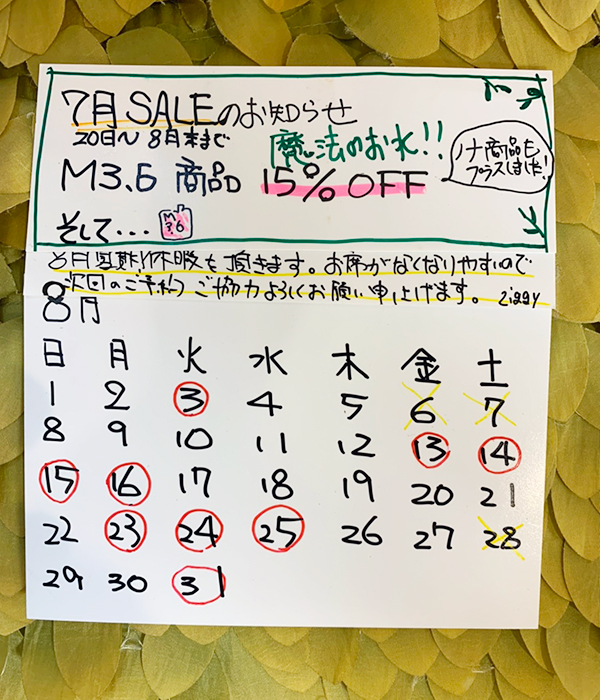 7月SALEのお知らせ
20日〜8月末まで
魔法のお水!!
M3.6 商品 15%OFF
ノナ商品も
プラスしました!
そして…
M
3.6
8月夏期休暇も頂きます。お席がなくなりやすいので
次回のご予約ご協力よろしくお願い申上げます。 ziggy
8月
日 月 火 水 木 金 土
1 2 3 4 5 6 7
8 9 10 11 12 13 14
15 16 17 18 19 20 21
22 23 24 25 26 27 28
29 30 31